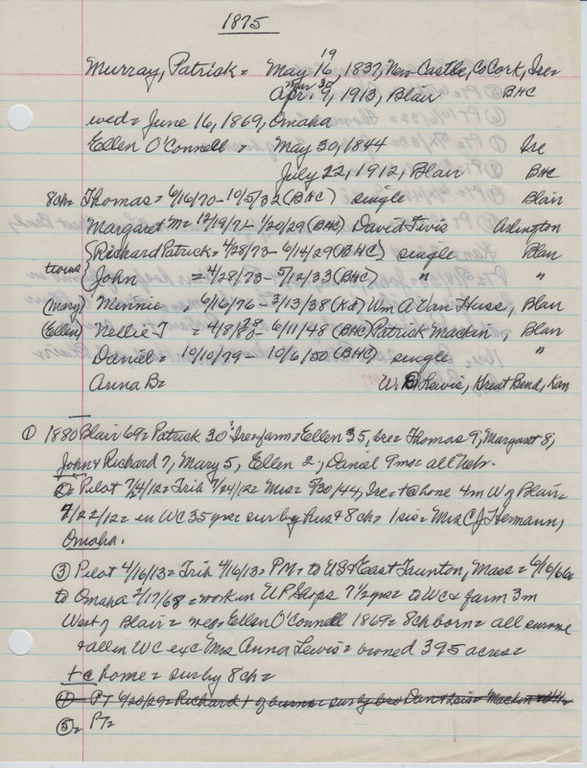 1875
19
Murray, Patrick = May 16, 1837, New Castle, Co Cork, Ire =
Mar 30
Apr. 9, 1913, Blair BHC
wed = June 16, 1869, Omaha
Ellen O'Connell = May 30, 1844 Ire
July 22, 1912, Blair BHC
8ch = Thomas = 6/16/70 - 10/5/32 (BHC) single Blair
Margaret M = 12/19/71 - 1/20/29 (BHC) David Tivis Arlington
{Richard Patrick = 4/28/73 - 6/14/29 (BHC) single Blair
twins {John = 4/28/73 - 5/12/33 (BHC) " "
(Mary) Minnie = 6/16/76 - 3/13/38 (Kd) Wm A Van Huss, Blair
(Ellen) Nellie T = 4/8/78 - 6/11/48 (BHC) Patrick Mackin, Blair
Daniel = 10/10/79 - 10/6/50 (BHC) single "
Anna B = W. B Lewis, Great Bend, Kan
① 1880 Blair 69 = Patrick 30, Ire = farm = Ellen 35, Ire = Thomas 9, Margaret 8,
John & Richard 7, Mary 5, Ellen 2, Daniel 9mo = all Neb.
② = Pilot 7/24/12 = Trib 7/24/12 = Mrs = 5/30/44, Ire = + @ home 4m W of Blair =
7/22/12 = in WC 35 yrs = sur by hus + 8ch = 1 sis = Mrs C J Hermann,
Omaha.
③ Pilot 4/16/13 = Trib 4/16/13 = PM = to US & East Taunton, Mass = 6/16/66
to Omaha 2/17/68 = work in UP Shops 7½ yrs = to WC & farm 3m
West of Blair = wed = Ellen O'Connell 1869 = 8ch born = all survive
& all in WC exc Mrs Anna Lewis = owned 395 acres =
+ @ home = sur by 8ch =
④ = PT 6/20/29 = Richard + of burns = sur by bro Dan + sis = Mackin
⑤ = PT =